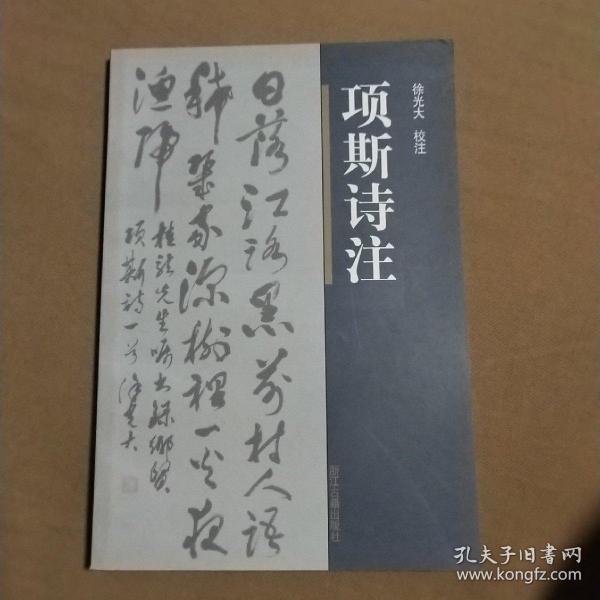 徐光大 校注
项斯诗注
浙江古籍出版社
日落江路黑前村人語
稀幾家深樹裡一火夜
漁歸
先生嘱書錄鄉賢
項斯詩一首 徐光大
孔夫子旧书网
www.kongfz.com